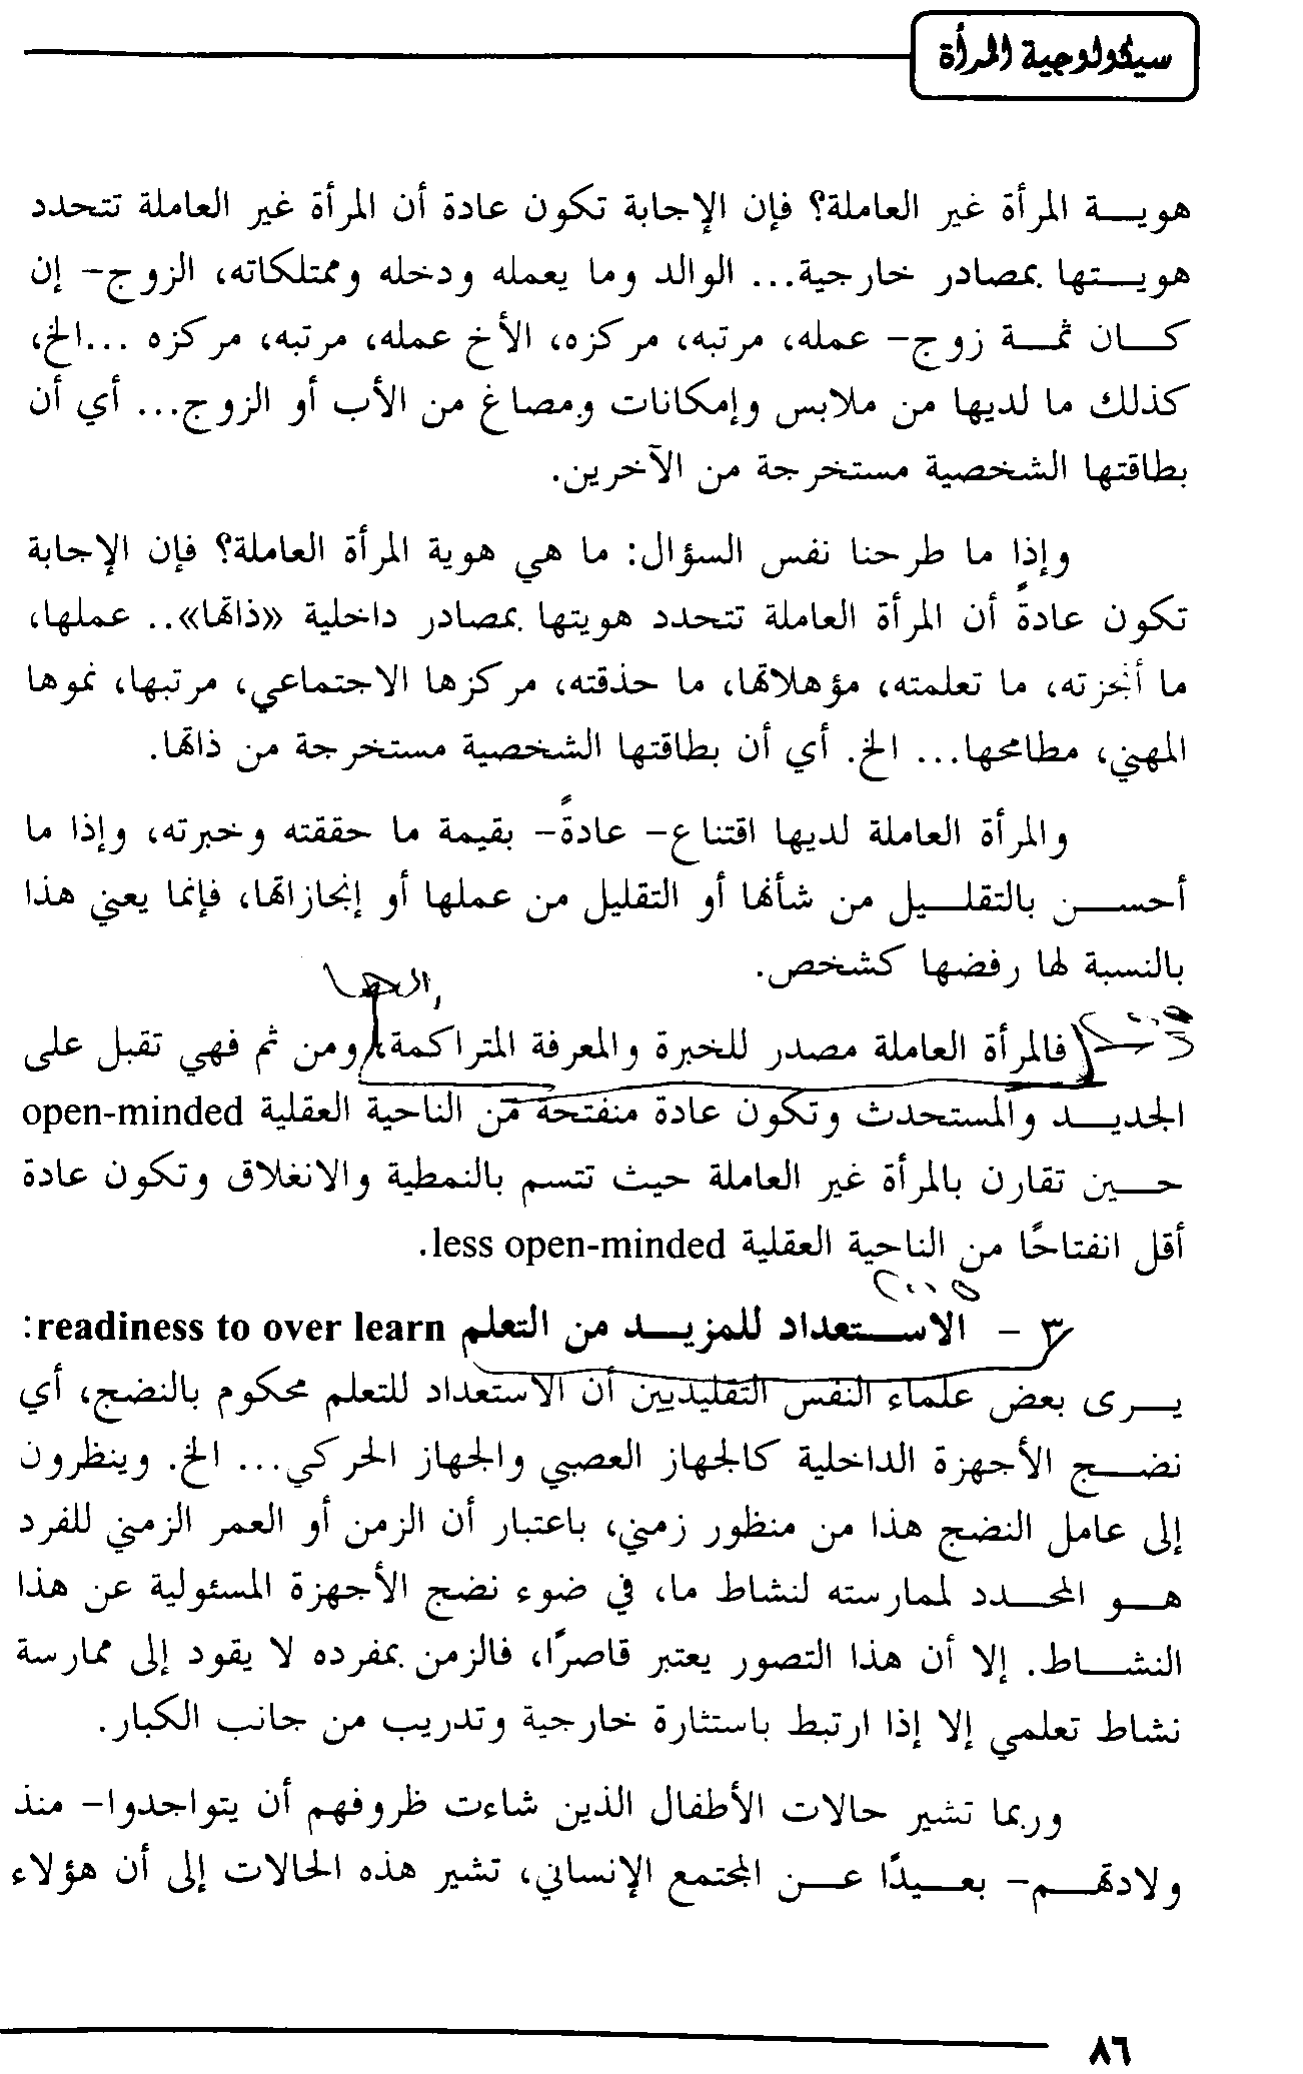 سيكولوجية المرأة
هويـــة المرأة غير العاملة؟ فإن الإجابة تكون عادة أن المرأة غير العاملة تتحدد
هويـــتها بمصادر خارجية... الوالد وما يعمله ودخله وممتلكاته، الزوج- إن
كـــان ثمـــة زوج- عمله، مرتبه، مركزه، الأخ عمله، مرتبه، مركزه ...الخ،
كذلك ما لديها من ملابس وإمكانات ومصاغ من الأب أو الزوج... أي أن
بطاقتها الشخصية مستخرجة من الآخرين.
وإذا ما طرحنا نفس السؤال: ما هي هوية المرأة العاملة؟ فإن الإجابة
تكون عادةً أن المرأة العاملة تتحدد هويتها بمصادر داخلية «ذاتها».. عملها،
ما أنجزته، ما تعلمته، مؤهلاتها، ما حذقته، مركزها الاجتماعي، مرتبها، نموها
المهني، مطامحها... الخ. أي أن بطاقتها الشخصية مستخرجة من ذاتها.
والمرأة العاملة لديها اقتناع- عادةً- بقيمة ما حققته وخبرته، وإذا ما
أحســـن بالتقلـــيل من شأنها أو التقليل من عملها أو إنجازاتها، فإنما يعني هذا
بالنسبة لها رفضها كشخص.
فالمرأة العاملة مصدر للخبرة والمعرفة المتراكمة، ومن ثم فهي تقبل على
الجديـــد والمستحدث وتكون عادة منفتحة من الناحية العقلية open-minded
حـــين تقارن بالمرأة غير العاملة حيث تتسم بالنمطية والانغلاق وتكون عادة
أقل انفتاحًا من الناحية العقلية less open-minded.
٣ - الاســـتعداد للمزيـــد من التعلم readiness to over learn:
يـــرى بعض علماء النفس التقليديين أن الاستعداد للتعلم محكوم بالنضج، أي
نضـــج الأجهزة الداخلية كالجهاز العصبي والجهاز الحركي... الخ. وينظرون
إلى عامل النضج هذا من منظور زمني، باعتبار أن الزمن أو العمر الزمني للفرد
هـــو المحـــدد لممارسته لنشاط ما، في ضوء نضج الأجهزة المسئولية عن هذا
النشـــاط. إلا أن هذا التصور يعتبر قاصرًا، فالزمن بمفرده لا يقود إلى ممارسة
نشاط تعلمي إلا إذا ارتبط باستثارة خارجية وتدريب من جانب الكبار.
وربما تشير حالات الأطفال الذين شاءت ظروفهم أن يتواجدوا- منذ
ولادتهـــم- بعـــيدًا عـــن المجتمع الإنساني، تشير هذه الحالات إلى أن هؤلاء
٨٦